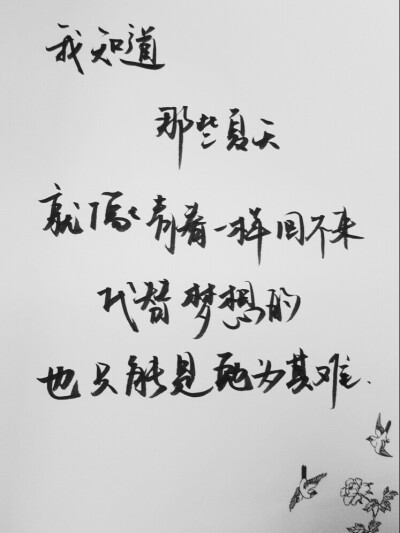 我知道
那些夏天
就像青春一样回不来
代替梦想的
也只能是勉为其难.